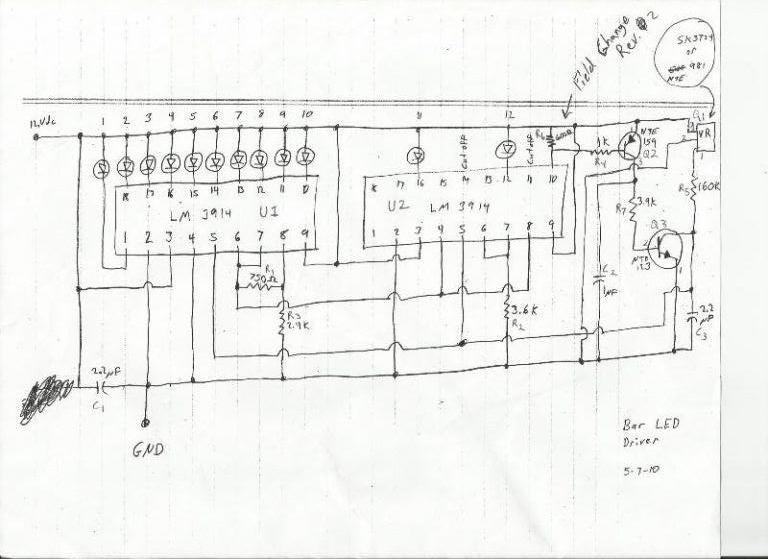 Field Change
Rev. 2
SK3724
or
NTE 981
12Vdc
1 2 3 4 5 6 7 8 9 10 11 12
R6
Q1
VR
1K
R4
NTE
159
Q2
Cut off
Cut off
18 17 16 15 14 13 12 11 10
LM 3914 U1
1 2 3 4 5 6 7 8 9
18 17 16 15 14 13 12 11 10
U2 LM 3914
1 2 3 4 5 6 7 8 9
R5
160K
R7
3.9K
Q3
123
R1
750Ω
R3
2.9K
3.6K
R2
C2
1µF
2.2
µF
C3
2.2µF
C1
GND
Bar LED
Driver
5-7-10